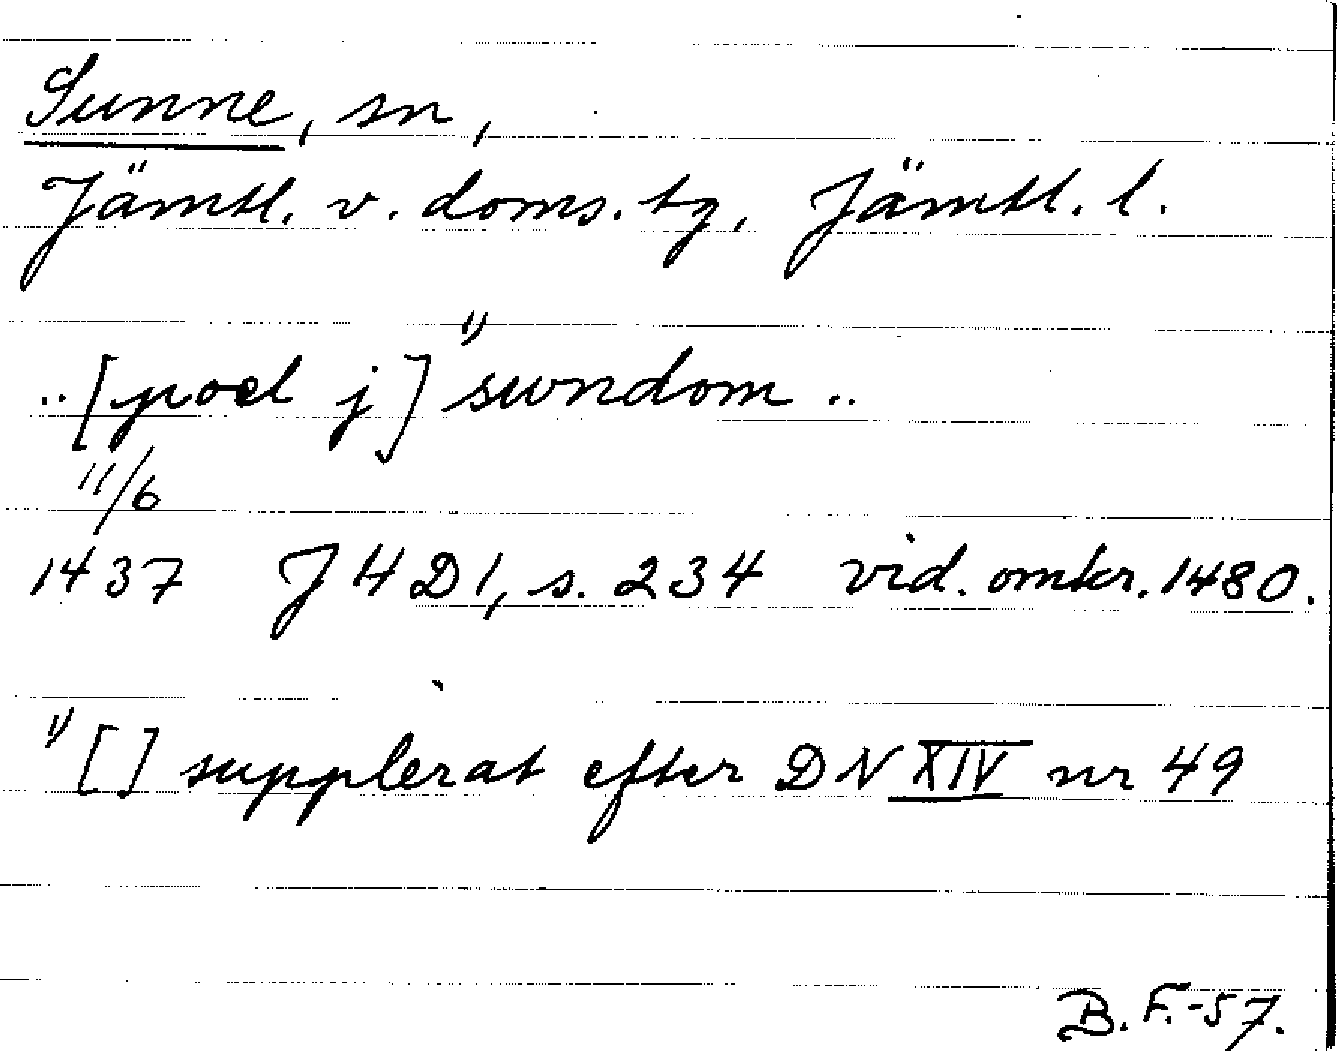 Sunne, sn,
Jämtl. v. doms. tg, Jämtl. l.
..[poel j]¹⁾ swndom ..
11/6
1437 JHD1, s. 234 vid. omkr. 1480.
¹⁾ [ ] supplerat efter DN XIV nr 49
B. F. -57.